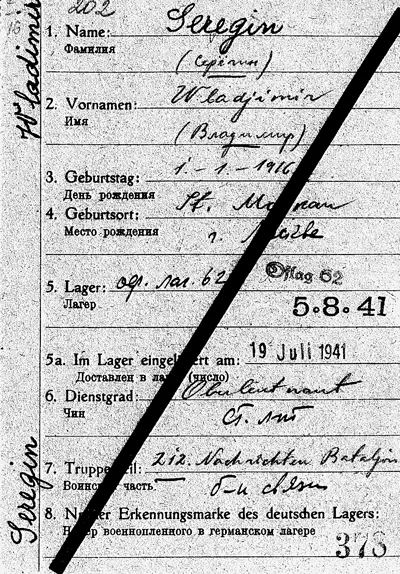 202
16
Wladimir
1. Name: Seregin
Фамилия
(Серегин)
2. Vornamen: Wladimir
Имя
(Владимир)
3. Geburtstag: 1-1-1916
День рождения
4. Geburtsort: St.
Место рождения г.
5. Lager: оф. лаг. 62 Oflag 62
Лагер
5.8.41
5a. Im Lager eingeliefert am: 19 Juli 1941
Доставлен в лаг (число)
6. Dienstgrad: Oberleutnant
Чин ст. лит
7. Truppenteil: 212. Nachrichten Bataljon
Воинск часть. б-н связи
Seregin
8. Nummer Erkennungsmarke des deutschen Lagers:
Номер военнопленного в германском лагере
378